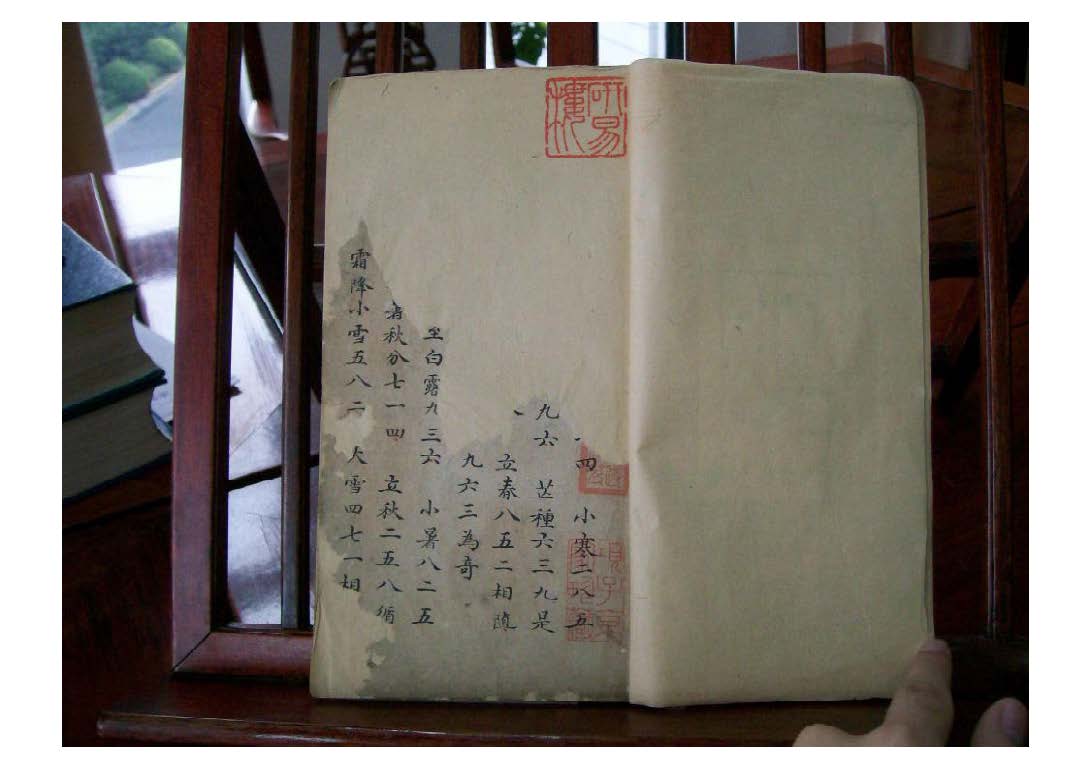 研易樓
四 小寒二八五
九六 芒種六三九是
立春八五二相隨
九六三為奇
至白露九三六 小暑八二五
秋分七一四 立秋二五八循
霜降小雪五八二 大雪四七一相
項子京家珍藏